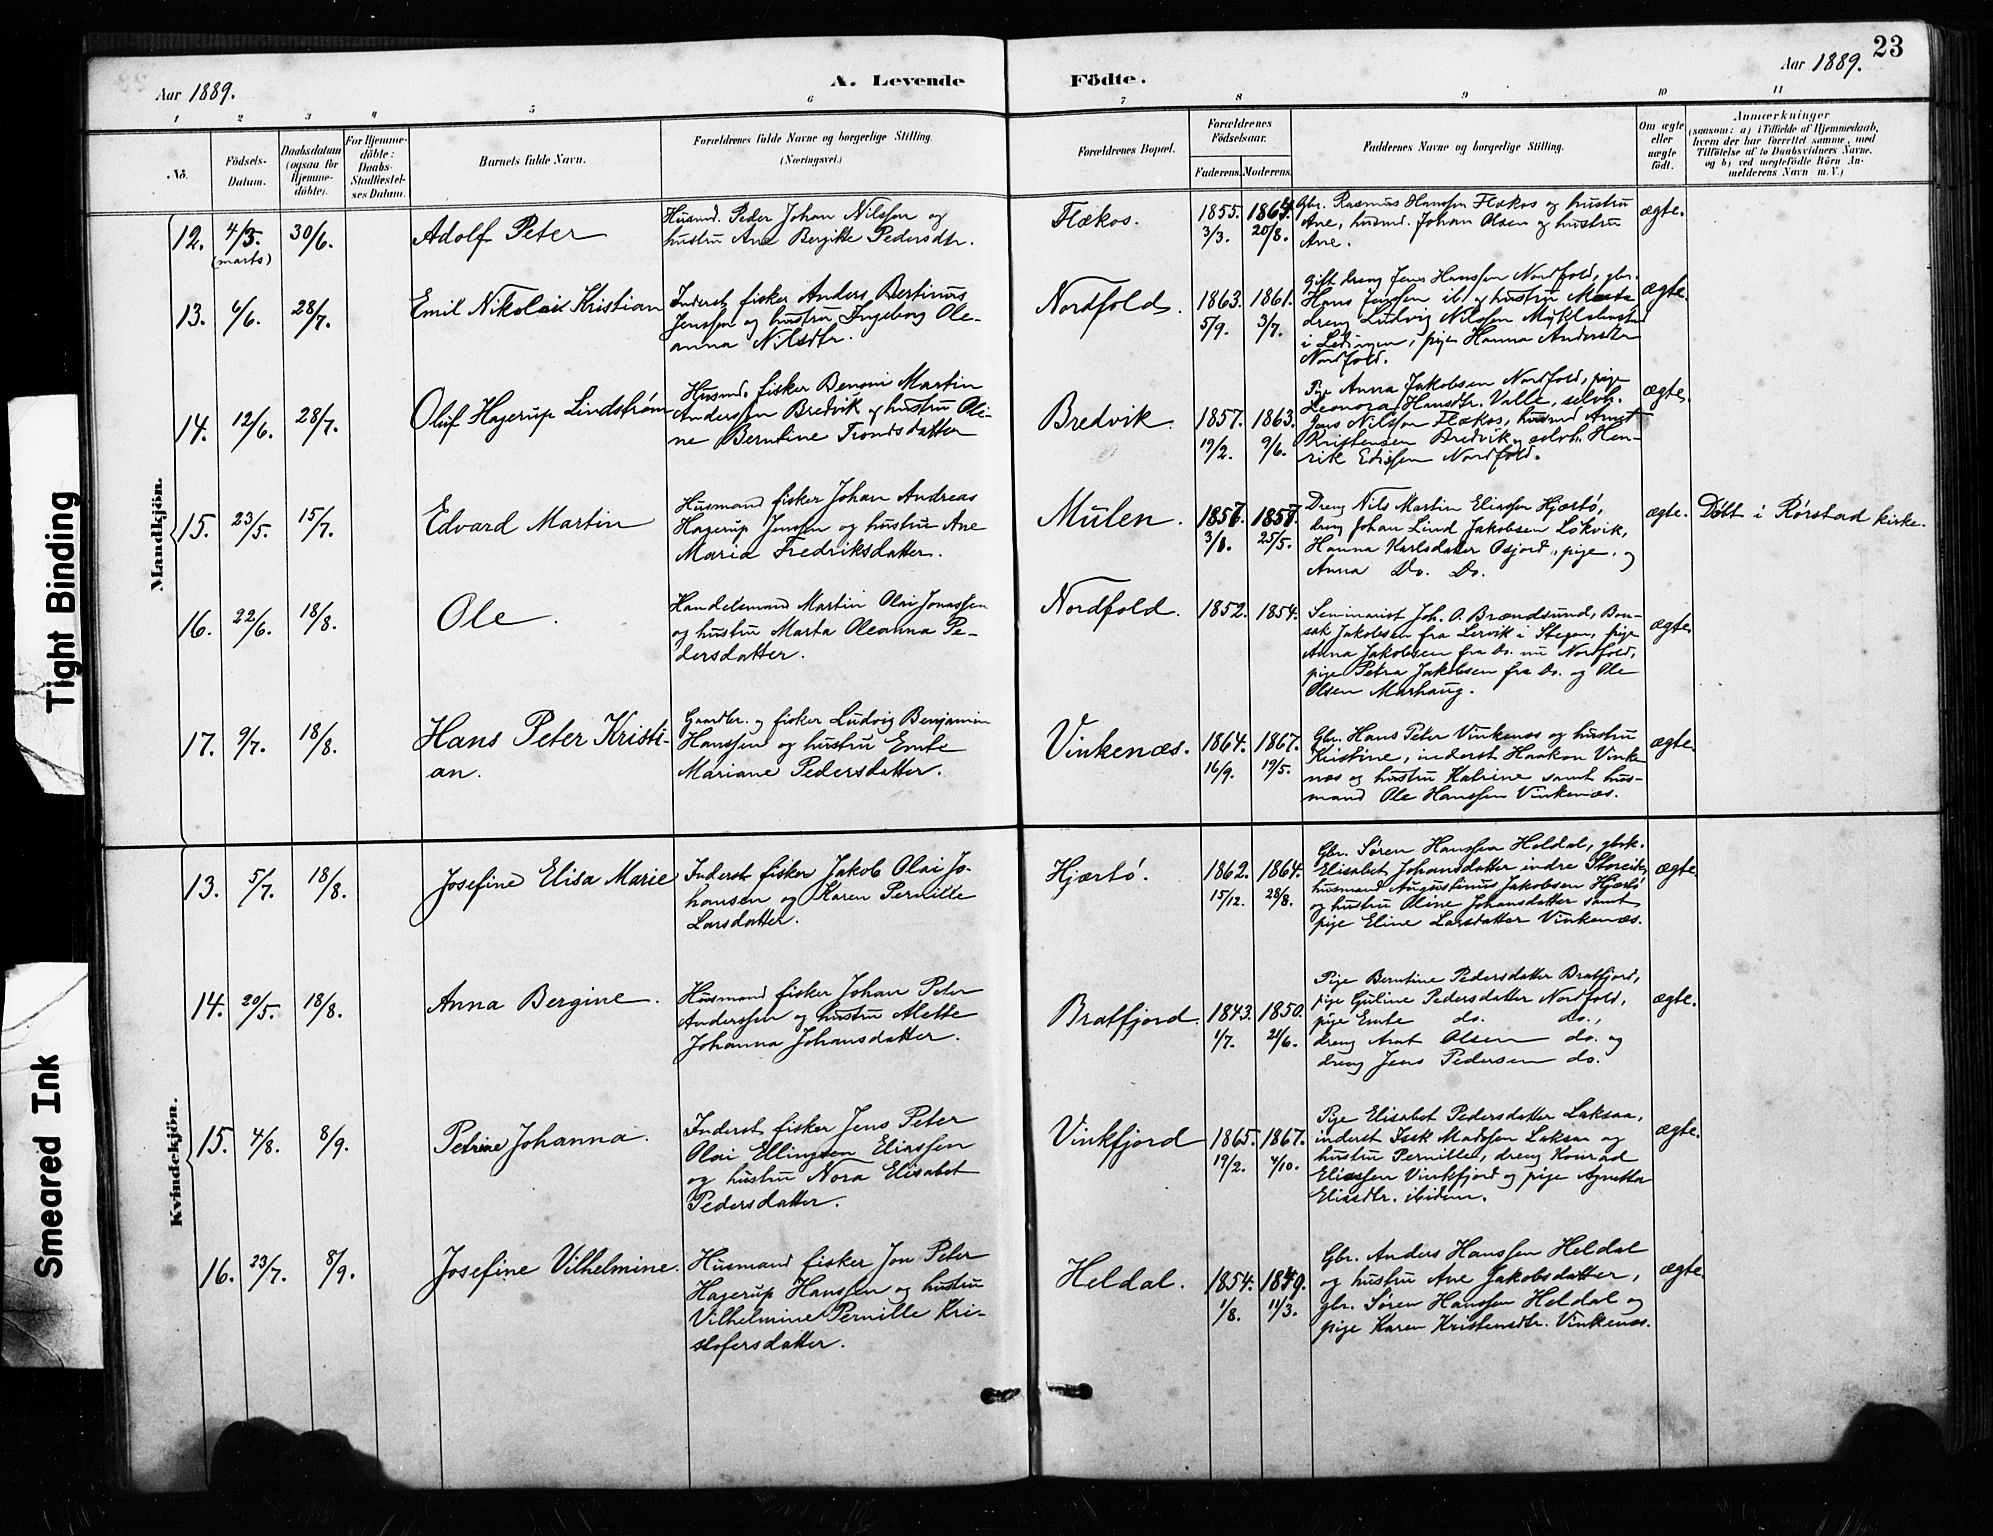 23
Aar 1889.
A. Levende
Födte.
Aar 1889.
1 2 3 4 5 6 7 8 9 10 11
No.
Födsels-
Datum.
Daabsdatum
(ogsaa for
Hjemme-
döbte).
For Hjemme-
döbte:
Daabs-
Stadfæstel-
ses Datum.
Barnets fulde Navn.
Forældrenes fulde Navne og borgerlige Stilling.
(Næringsvei.)
Forældrenes Bopæl.
Forældrenes
Födselsaar.
Faderens. Moderens.
Faddernes Navne og borgerlige Stilling.
Om ægte
eller
uægte
födt.
Anmærkninger
(saasom: a) i Tilfælde af Hjemmedaab,
hvem der har forrettet samme, med
Tilföielse af to Daabsvidners Navne.
og b) ved uægtefödte Börn An-
melderens Navn m. V.)
Mandkjön.
12. 4/3. (marts) 30/6.
Adolf Peter
Husmd. Peder Johan Nilssen og
hustru Ane Bergitte Pedersdtr.
Flækos.
1855. 3/3.
1864. 20/8.
Gbr. Rasmus Hanssen Flækos og hustru
Ane, husmd. Johan Olsen og hustru
Ane.
ægte.
13. 6/6. 28/7.
Emil Nikolai Kristian
Inderst fisker Anders Bertinus
Jenssen og hustru Ingeborg Ole-
anna Nilsdtr.
Nordfold.
1863. 5/9.
1861. 3/7.
Gift dreng Jens Hanssen Nordfold, gbr.
Hans Jenssen ib. og hustru Marta
dreng Ludvig Nilssen Myklebostad
i Ledingen, pige Hanna Andersdtr
Nordfold.
ægte.
14. 12/6. 28/7.
Oluf Hagerup Lindstrøm
Husmd. fisker Benoni Martin
Anderssen Bredvik og hustru Oli-
ne Berntine Trondsdatter
Bredvik.
1857. 19/2.
1863. 9/6.
Pige Anna Jakobsen Nordfold, pige
Leonora Hansdtr. Valle, selvh.
Jens Nilssen Flækos, husmd Arnt
Kristensen Bredvik og selvh. Hen-
rik Edissen Nordfold.
ægte.
15. 23/5. 15/7.
Edvard Martin
Husmand fisker Johan Andreas
Hagerup Jenssen og hustru Ane
Maria Fredriksdatter.
Mulen.
25/5.
Dreng Nils Martin Eliassen Hjærtø,
dreng Johan Lind Jakobsen Løkvik,
Hanna Karlsdatter Osjord, pige, og
Anna Do. Do.
ægte.
Døbt i Rørstad kirke.
16. 22/6. 18/8.
Ole.
Handelsmand Martin Olai Jonassen
og hustru Marta Oleanna Pe-
dersdatter.
Nordfold.
1852. 1854.
Seminarist Joh. O. Brændsund, Bon-
sak Jakobsen fra Lervik i Stegen, pige
Anna Jakobsen fra do. nu Nordfold,
pige Petra Jakobsen fra do. og Ole
Olsen Marhaug.
ægte.
17. 9/7. 18/8.
Hans Peter Kristi-
an.
Gaardbr. og fisker Ludvig Benjamin
Hanssen og hustru Emte
Mariane Pedersdatter.
Vinkenæs.
1864. 16/9.
1867. 19/5.
Gbr. Hans Peter Vinkenæs og hustru
Kristine, inderst Haakon Vinke-
næs og hustru Katrine samt hus-
mand Ole Hanssen Vinkenæs.
ægte.
Kvindekjön.
13. 5/7. 18/8.
Josefine Elisa Marie
Inderst fisker Jakob Olai Jo-
hansen og Karen Pernille
Larsdatter.
Hjærtø.
1862. 15/12.
1864. 28/8.
Gbr. Søren Hanssen Heldal, gbrk.
Elisabet Johansdatter indre Storeide,
husmand Augustinus Jakobsen Hjærtø
og hustru Oline Johansdatter samt
pige Eline Larsdatter Vinkenæs.
ægte.
14. 20/5. 18/8.
Anna Bergine.
Husmand fisker Johan Peter
Anderssen og hustru Alette
Johanna Johansdatter.
Bratfjord.
1843. 1/7.
1850. 21/6.
Pige Berntine Pedersdatter Bratfjord,
pige Guline Pedersdatter Nordfold,
pige Emte do. do.,
dreng Arnt Olsen do. og
dreng Jens Pedersen do.
ægte.
15. 4/8. 8/9.
Petrine Johanna.
Inderst fisker Jens Peter
Olai Ellingsen Eliassen
og hustru Nora Elisabet
Pedersdatter.
Vinkfjord
1865. 19/2.
1867. 4/10.
Pige Elisabet Pedersdatter Laksaa,
inderst Isak Madssen Laksaa og
hustru Pernille, dreng Konrad
Eliassen Vinkfjord og pige Agnetta
Eliasdtr. ibidem.
ægte.
16. 23/7. 8/9.
Josefine Vilhelmine.
Husmand fisker Jon Peter
Hagerup Hanssen og hustru
Vilhelmine Pernille Kri-
stofersdatter.
Heldal.
1854. 1/8.
1849. 11/3.
Gbr. Anders Hanssen Heldal
og hustru Ane Jakobsdatter,
gbr. Søren Hanssen Heldal og
pige Karen Kristensdtr. Vinkenæs.
ægte.
Tight Binding
Smeared Ink